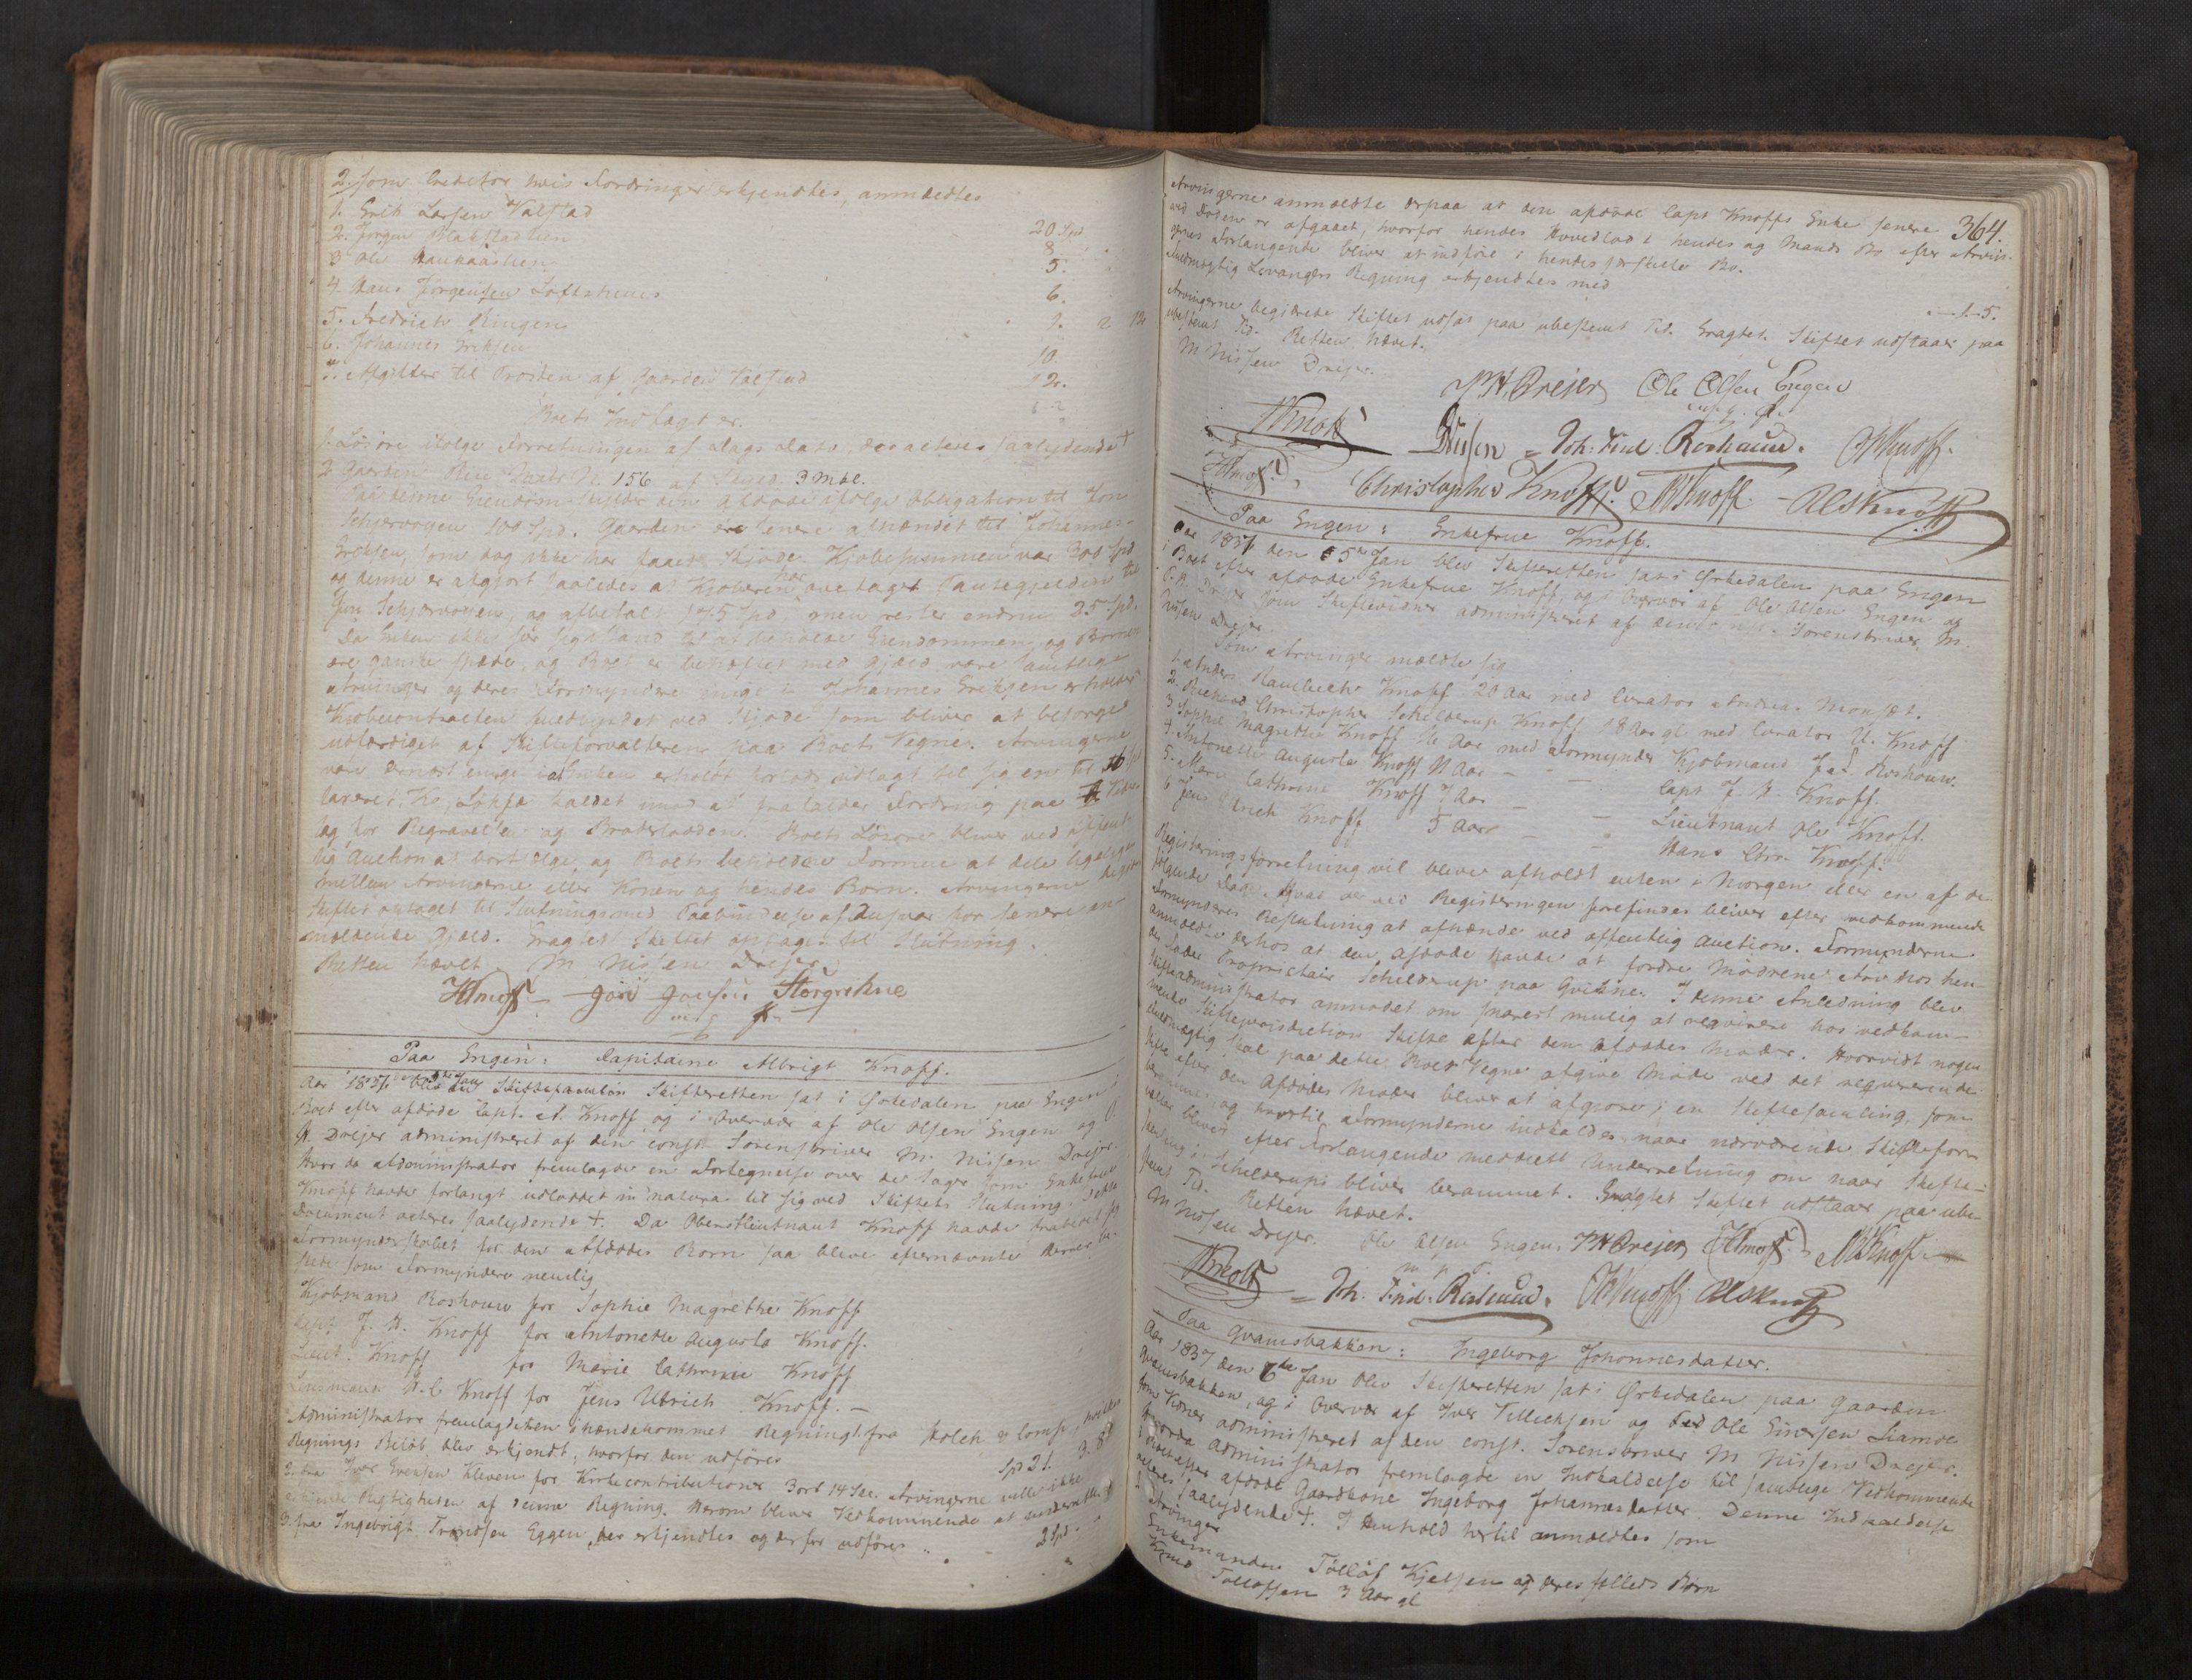 2. Som Creditor hvis Fordringer erkjendtes, anmeldtes
1. Erik Larsen Valstad 20 Spd
2. Jörgen 8. "
3 Ole 5. "
4 Hans Jörgensen 6.
5. Fredrich Ringen 1. 2 12
6. Johannes Eriksen 10.
7. Afgifter til Præsten af Gaarden Valstad 12.
Boets Indtægt er.
1. Lösöre ifölge Forretningen af Dags Dato, der acteres saalydende †
2. Gaarden No 156 af Skyld 3 Mkl.
Paa denne Eiendom skylder den afdöde ifölge Obligation til Jon
Schjervoyen 100 Spd. Gaarden er senere afhændet til Johannes
Eriksen, som dog ikke har faaet Skjöde. Kjöbesummen var 300 Spd
og denne er afgjort saaledes at Kjöberen har overtaget Pantegjelden til
Jon Schjervoyen, og afbetalt 175 Spd men rester endnu 25 Spd.
Da Enken ikke sig istand til at beholde Eiendommen, og Börnene
ere ganske spæde, og Boet er behæftet med Gjæld vare samtlige
Arvinger og deres Formyndere enige i Johannes Eriksen erholder
Kjöbecontracten fuldbyrdet ved Skjöde som bliver at besörge
udfærdiget af Skifteforvalteren paa Boets Vegne. Arvingerne
vare dernæst enige i at Enken erholdt forlods udlagt til sig en til 10
taxeret Ko kaldet imod at frafalder Fordring paa
og for Begravelse og Brödföden. Boets Lösöre bliver ved offent-
lig Auction at bortsælge, og Boets beholdne Formue at dele ligeligen
mellem Arvingerne eller Konen og hendes Börn. Arvingerne
Skiftet optaget til Slutning med Paabindelse af Ansvar for senere an-
meldende Gjæld. Eragtet Skiftet optages til Slutning.
Retten hævet M Nissen Dreyer
JHKnoff Jon Jonsen Storgrekne
m f P
Paa Engen: Capitaine Albrigt Knoff.
Aar 1837 blev den Jan Skifteretten sat i Örkedalen paa Engen i
Boet efter afdöde Capt. A. Knoff og i Overvær af Ole Olsen Engen og P.
H. Dreyer administreret af den const. Sorenskriver M. Nissen Dreyer.
Hvor da Administrator fremlagde en Fortegnelse over de Sager som Enkefrue
Knoff havde forlangt udloddet in natura til sig ved Skiftets Slutning. Dette
Document acteres saalydende †. Da Oberstlieutnant Knoff havde frabedet sig
Formynderskabet for den Afdödes Börn saa bleve efternævnte derver be-
skede som Formyndere nemlig
Kjöbmand Roshouw for Sophie Magrethe Knoff
Capt J. H. Knoff for Antonette Augusta Knoff.
Lieut. Knoff for Marie Cathrine Knoff
Lensmand H. C Knoff for Jens Ulrich Knoff. —
Administrator fremlagde en ihændekommet Regning 1. fra Holck & Comp, hvilken
Regnings Belöb blev erkjendt, hvorfor den udföres Spd 21. 3. 8
2. fra Iver Evensen Kleven for Kirkecontributioner 3 ort 14 Sk. Arvingerne ville ikke
erkjende Rigtigheden af denne Regning. Herom bliver Vedkommende at underrette
3. fra Ingebrigt Trondsen Eggen, der erkjendtes og derfor udföres " " 2 Spd. "
364.
Arvingerne anmeldte derpaa at den afdöde Capt Knoffs Enke senere
ved Döden er afgaaet, hvorfor hendes Hovedlod i hendes og Mands Bo efter Arvin-
gernes Forlangende bliver at indföre i hendes særskilte Bo.
Fuldmægtig Levangers Regning erkjendtes med " — 1 — 5.
Arvingerne begjærede Skiftet udsat paa ubestemt Tid. Eragtet. Skiftet udstaaer paa
ubestemt Tid. Retten hævet.
M Nissen Dreyer. P H Dreyer Ole Olsen Engen
m. p. P.
Knoff DNissen = Joh: Find: Roshauw. OKnoff.
JHKnoff Christopher Knoff. MKnoff. — AUSKnoff
Paa Engen: Enkefrue Knoff.
Aar 1837 den 5te Jan blev Skifteretten sat i Örkedalen paa Engen
i Boet efter afdöde Enkefrue Knoff, og i Overvær af Ole Olsen Engen og
P. H. Dreyer som Skiftevidner administreret af den const. Sorenskriver M.
Nissen Dreyer.
Som Arvinger meldte sig
1. Anders Rambech Knoff 20 Aar med Curator Andreas Monsæt.
2. Richard Christopher Schelderup Knoff 18 Aar gl. med Curator U. Knoff
3. Sophie Magrethe Knoff 16 Aar med Formynder Kjöbmand J. F. Roshouw.
4. Antonette Augusta Knoff 11 Aar — — Capt J. H. Knoff.
5. Marie Cathrine Knoff 7 Aar — — Lieutnant Ole Knoff.
6 Jens Ulrich Knoff 5 Aar — " Hans Chr. Knoff.
Registreringsforretning vil blive afholdt enten i Morgen eller en af de
fölgende Dage. Hvad der ved Registeringen forefindes bliver efter vedkommende
Formynderes Beslutning at afhænde ved offentlig Auction. Formynderne
anmeldte derhos at den afdöde havde at fordre Mödrene Arv hos hen-
des Fader Proprietair Schelderup paa Qvikne. I denne Anledning blev
Skifteadministrator anmodet om snarest mulig at reqvirere hos vedkom-
mende Skiftejurisdiction Skifte efter den Afdödes Moder. Hvorvidt nogen
Fuldmægtig skal paa dette Boes Vegne afgive Möde ved det reqvirerende
Skifte efter den Afdödes Moder bliver at afgjöre i en Skiftesamling, som
berammes og hvortil Formynderne indkaldes, naar nærværende Skiftefor-
valter bliver efter Forlangende meddeelt Underretning om naar Skifte-
samling i Schelderups bliver berammet. Eragtet Skiftet udstaaer paa ube-
stemt Tid. Retten hævet.
M Nissen Dreyer. Ole Olsen Engen. P H Dreyer JHKnoff MKnoff
m p P.
Knoff = Joh. Find. Roshauw. OKnoff AUSKnoff
Paa Qvamsbakken: Ingeborg Johannesdatter.
Aar 1837 den 6te Jan blev Skifteretten sat i Örkedalen paa Gaarden
Qvamsbakken, og i Overvær af Iver Tellefsen og Ole Einersen Liamoe
som Vidner administreret af den const. Sorenskriver M Nissen Dreyer.
Hvorda Administrator fremlagde en Indkaldelse til samtlige Vedkommende
i Boet efter afdöde Gaardkone Ingeborg Johannesdatter. Denne Indkaldelse
acteres saalydende †. I Henhold hertil anmeldtes som
1. Arvinger
Enkemanden Tollof Kjelsen og deres fælleds Börn
Knud Tollofsen 3 Aar gl